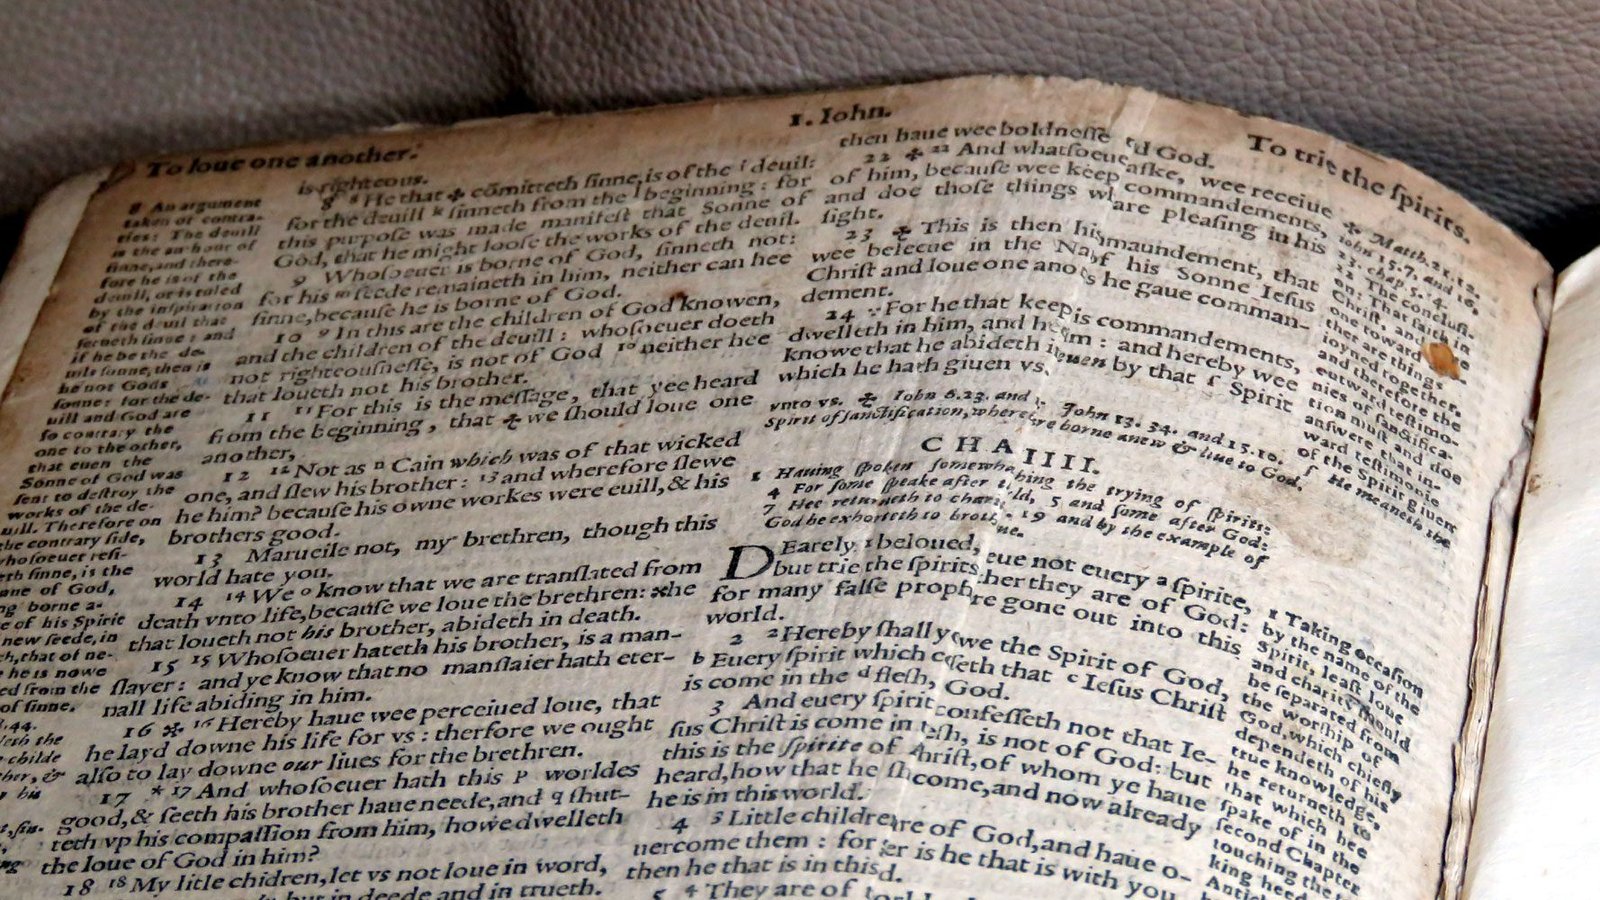 To loue one another.
1. Iohn.
To trie the spirits.
8 An argument
taken of contra-
ries: The deuill
is the authour of
sinne, and there-
fore he is of the
deuill, or is ruled
by the inspiration
of the deuil that
serueth sinne: and
if he be the de-
uils sonne, then is
he not Gods
sonne: for the de-
uill and God are
so contrary the
one to the other,
that euen the
Sonne of God was
sent to destroy the
works of the de-
uill. Therefore on
the contrary side,
whosoeuer resi-
sinne, is the
of God,
borne a-
of his Spirit
new seede, in
that of ne-
he is nowe
from the
of sinne.
is righteous.
8 ⁸ He that ✠ cõmitteth sinne, is of the ⁱ deuil:
for the deuill ᵏ sinneth from the ˡ beginning: for
this purpose was made manifest that Sonne of
God, that he might loose the works of the deuil.
9 Whosoeuer is borne of God, sinneth not:
for his ᵐ seede remaineth in him, neither can hee
sinne, because he is borne of God.
10 ⁹ In this are the children of God knowen,
and the children of the deuill: whosoeuer doeth
not righteousnesse, is not of God ¹⁰ neither hee
that loueth not his brother.
11 ¹¹ For this is the message, that yee heard
from the beginning, that ✠ we should loue one
another,
12 ¹² Not as ⁿ Cain which was of that wicked
one, and slew his brother: ¹³ and wherefore slewe
he him? because his owne workes were euill, & his
brothers good.
13 Marueile not, my brethren, though this
world hate you.
14 ¹⁴ We ᵒ know that we are translated from
death vnto life, because we loue the brethren: ✠ he
that loueth not his brother, abideth in death.
15 ¹⁵ Whosoeuer hateth his brother, is a man-
slayer: and ye know that no manslaier hath eter-
nall life abiding in him.
16 ✠ ¹⁶ Hereby haue wee perceiued loue, that
he layd downe his life for vs: therfore we ought
also to lay downe our liues for the brethren.
17 * ¹⁷ And whosoeuer hath this ᵖ worldes
good, & seeth his brother haue neede, and ᑫ shut-
teth vp his compassion from him, howe dwelleth
the loue of God in him?
18 ¹⁸ My litle chidren, let vs not loue in word,
but in deede and in trueth.
then haue wee boldnesse God.
22 ✠ ²² And whatsoeue aske, wee receiue
of him, because wee keep commandements,
and doe those things are pleasing in his
sight.
23 ✠ This is then his maundement, that
wee beleeue in the Na his Sonne Iesus
Christ and loue one ano he gaue comman-
dement.
24 For he that keep is commandements,
dwelleth in him, and he m: and hereby wee
knowe that he abideth i euen by that ſ Spirit
which he hath giuen vs.
vnto vs. ✠ Iohn 6.23. and John 13. 34. and 15.10. ſ He meaneth the
Spirit of sanctification, where re borne anew & liue to God.
CHA IIII.
1 Hauing spoken somewha hing the trying of spirits:
4 For some speake after ld, 5 and some after God:
7 Hee returneth to chari 19 and by the example of
God he exhorteth to broth ue.
DEarely ¹ beloued, eue not euery ᵃ spirite,
but trie the spirits her they are of God:
for many false proph re gone out into this
world.
2 ² Hereby shall y we the Spirit of God,
ᵇ Euery spirit which c seth that ᶜ Iesus Christ
is come in the ᵈ flesh, God.
3 And euery spirit confesseth not that Ie-
sus Christ is come in sh, is not of God: but
this is the spirite of hrist, of whom ye haue
heard, how that he sh come, and now already
he is in this world.
4 ³ Little children re of God, and haue o-
uercome them: for er is he that is with you
then he that is in this d.
5 ⁴ They are of
✠ Matth. 21.12.
iohn 15.7. and 16,
23. chap. 5. 14.
22 The conclusi-
on: That faith in
Christ, and loue
one toward
ther are things
ioyned together,
and therefore the
outward testimo-
nies of sanctifica-
tion must and doe
answere that in-
ward testimonie
of the Spirit giuen
1 Taking occasion
by the name of the
Spirit, least loue
and charity should
be separated from
the worship of
God, which chiefly
dependeth of his
true knowledge,
he returneth to
that which hee
spake of in the
second Chapter
touching the
king heed
Antich